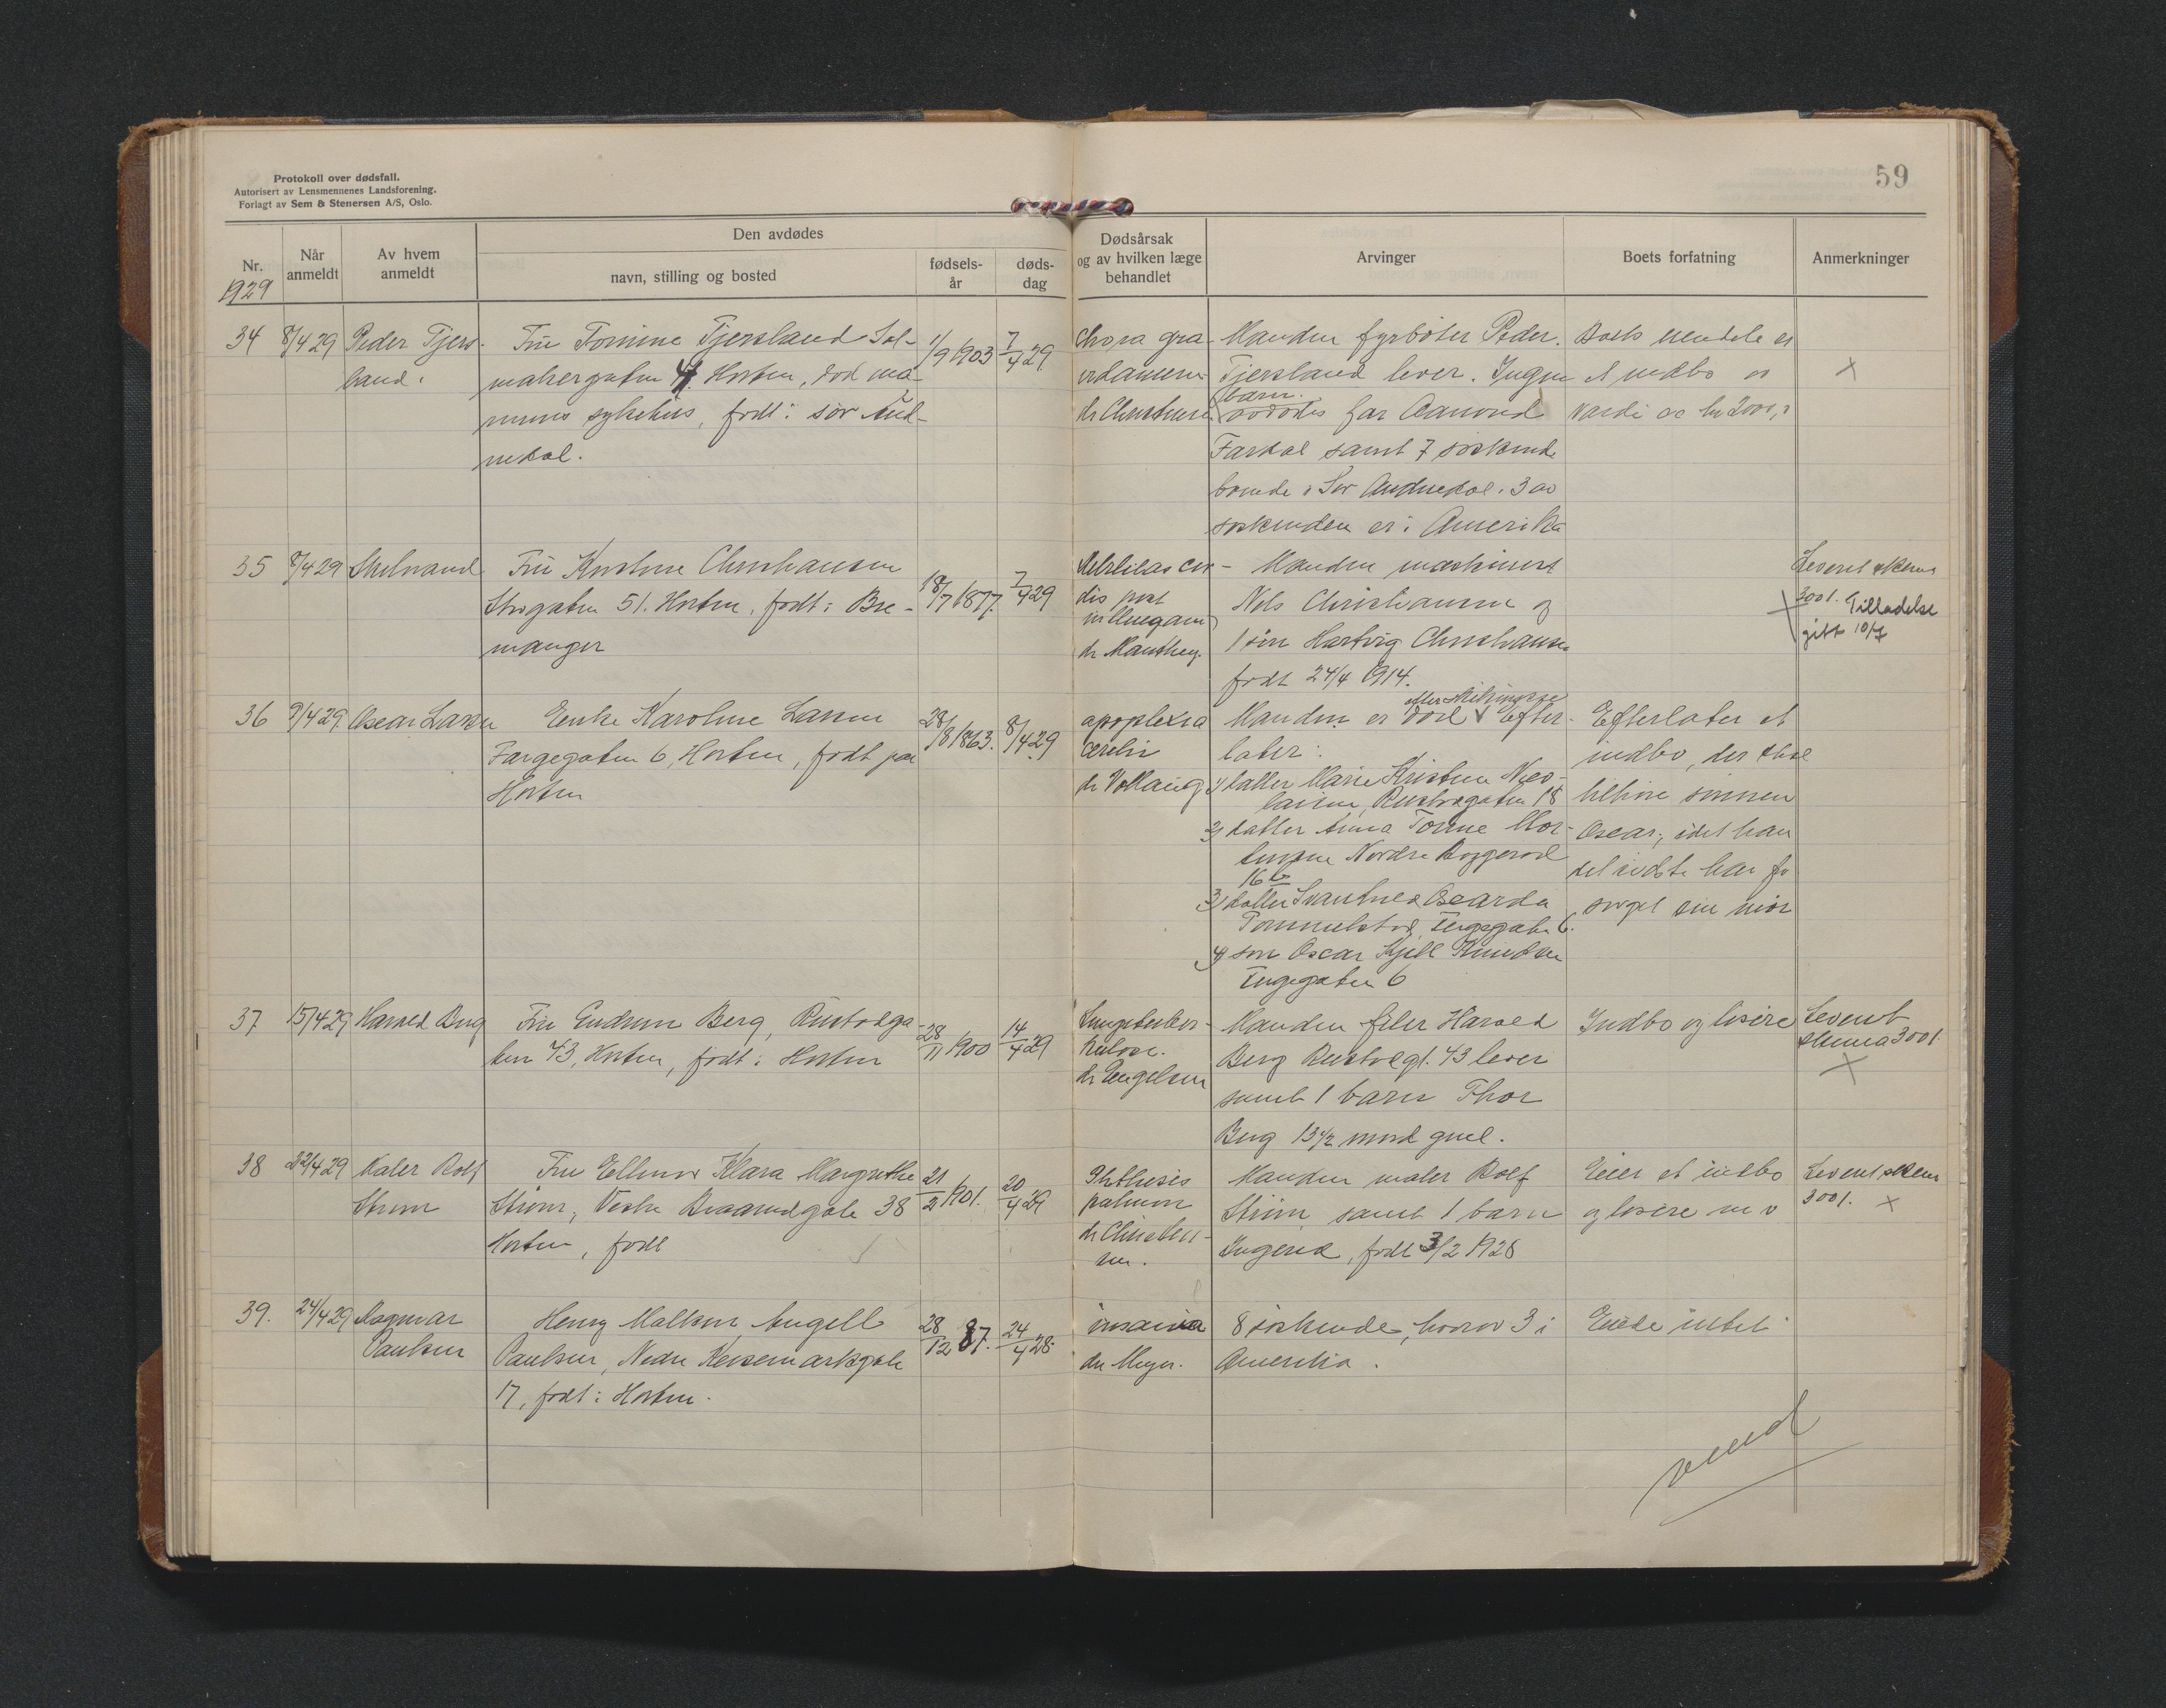 Protokoll over dødsfall.
Autorisert av Lensmennenes Landsforening.
Forlagt av Sem & Stenersen A/S, Oslo.
59
Nr.
1929
Når
anmeldt
Av hvem
anmeldt
Den avdødes
navn, stilling og bosted
fødsels-
år
døds-
dag
Dødsårsak
og av hvilken læge
behandlet
Arvinger
Boets forfatning
Anmerkninger
34 8/4 29 Peder Tjers-
land.
Fru Tomine Tjersland Sel-
makergaten 4. Horten, død ma-
rinens sykehus, født i sør Aud-
nedal.
1/9 1903 7/4 29
dr Christensen
Manden fyrbøter Peder
Tjersland lever. Ingen
barn.
avdødes far Aamund
Fardal samt 7 søskende
boende i Sør Audnedal. 3 av
søskenden er i Amerika
Boets eiendele er
et indbo av
værdi ca kr 2000,-
X
35 8/4 29
Fru Kristine Christiansen
Storgaten 51. Horten, født i Bre-
manger
18/7 1877. 7/4 29
dis post
dr Manthey.
Manden maskinist
Nils Christiansen og
1 søn Hartvig Christiansen
født 24/4 1914.
Levert skema
3001. Tilladelse
gitt 10/7
36 9/4 29 Oscar Larsen
Enke Karoline Larsen
Færgegaten 6, Horten, født paa
Horten
28/8 1863. 8/4 29
apoplexia
cerebri
dr Vollaug
Manden er død Efter-
later:
1) datter Marie Kristine Nico-
laisen, Rustadgaten 18
2) datter Anna Tomine Mor-
tensen Nordre Roggerød
16 b
3) datter Svanhild Oscarda
Tommelstad Færgegaten 6.
4) søn Oscar Kjell Knudsen
Færgegaten 6
Efterlater et
indbo, der skal
tilhøre sønnen
Oscar, idet han
det sidste har for
sørget sin mor
37 15/4 29 Harald Berg
Fru Gudrun Berg, Rustadga-
ten 43, Horten, født i Horten
28/11 1900 14/4 29
Lungetuber-
kulose.
dr Engelsen
Manden feier Harald
Berg Rustadgt. 43 lever
samt 1 barn Thor
Berg 13 1/2 mnd gml.
Indbo og løsøre
Levert
skema 3001
X
38 22/4 29 Maler Rolf
Strøm
Fru Ellinor Klara Margrethe
Strøm, Vestre Braarudgate 38
Horten, født
21/2 1901. 20/4 29
Phthisis
pulmon
dr Christen-
sen.
Manden maler Rolf
Strøm samt 1 barn
Ingerid, født 3/2 1928
Eier et indbo
og løsøre m v
Levert skema
3001. X
39. 24/4 29 Dagmar
Paulsen
Henry Maltom Angell
Paulsen, Nedre Keisemarkgate
17, født i Horten.
28/12 87. 24/4 28
insania
dr Meyer.
8 søskende, hvorav 3 i
Amerika.
Eiede intet
vend